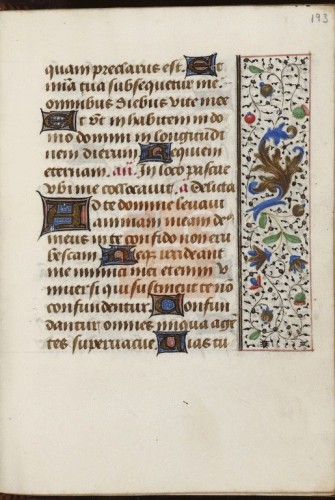 193
quam preclarus est. Et
mīa tua subsequetur me.
omnibus diebus vite mee
Et ut in habitem in do
mo domini in longitudi
nem dierum. Requiem
eternam. añ. In loco pascue
ubi me collocavit. a Delicta
Ad te domine levavi
animam meam de⁹
meus in te confido non eru
bescam. Neque irrideant
me inimici mei etenim v
niversi qui sustinent te nō
confundentur. Confun
dantur omnes iniqua agē
tes supervacue. Vias tu